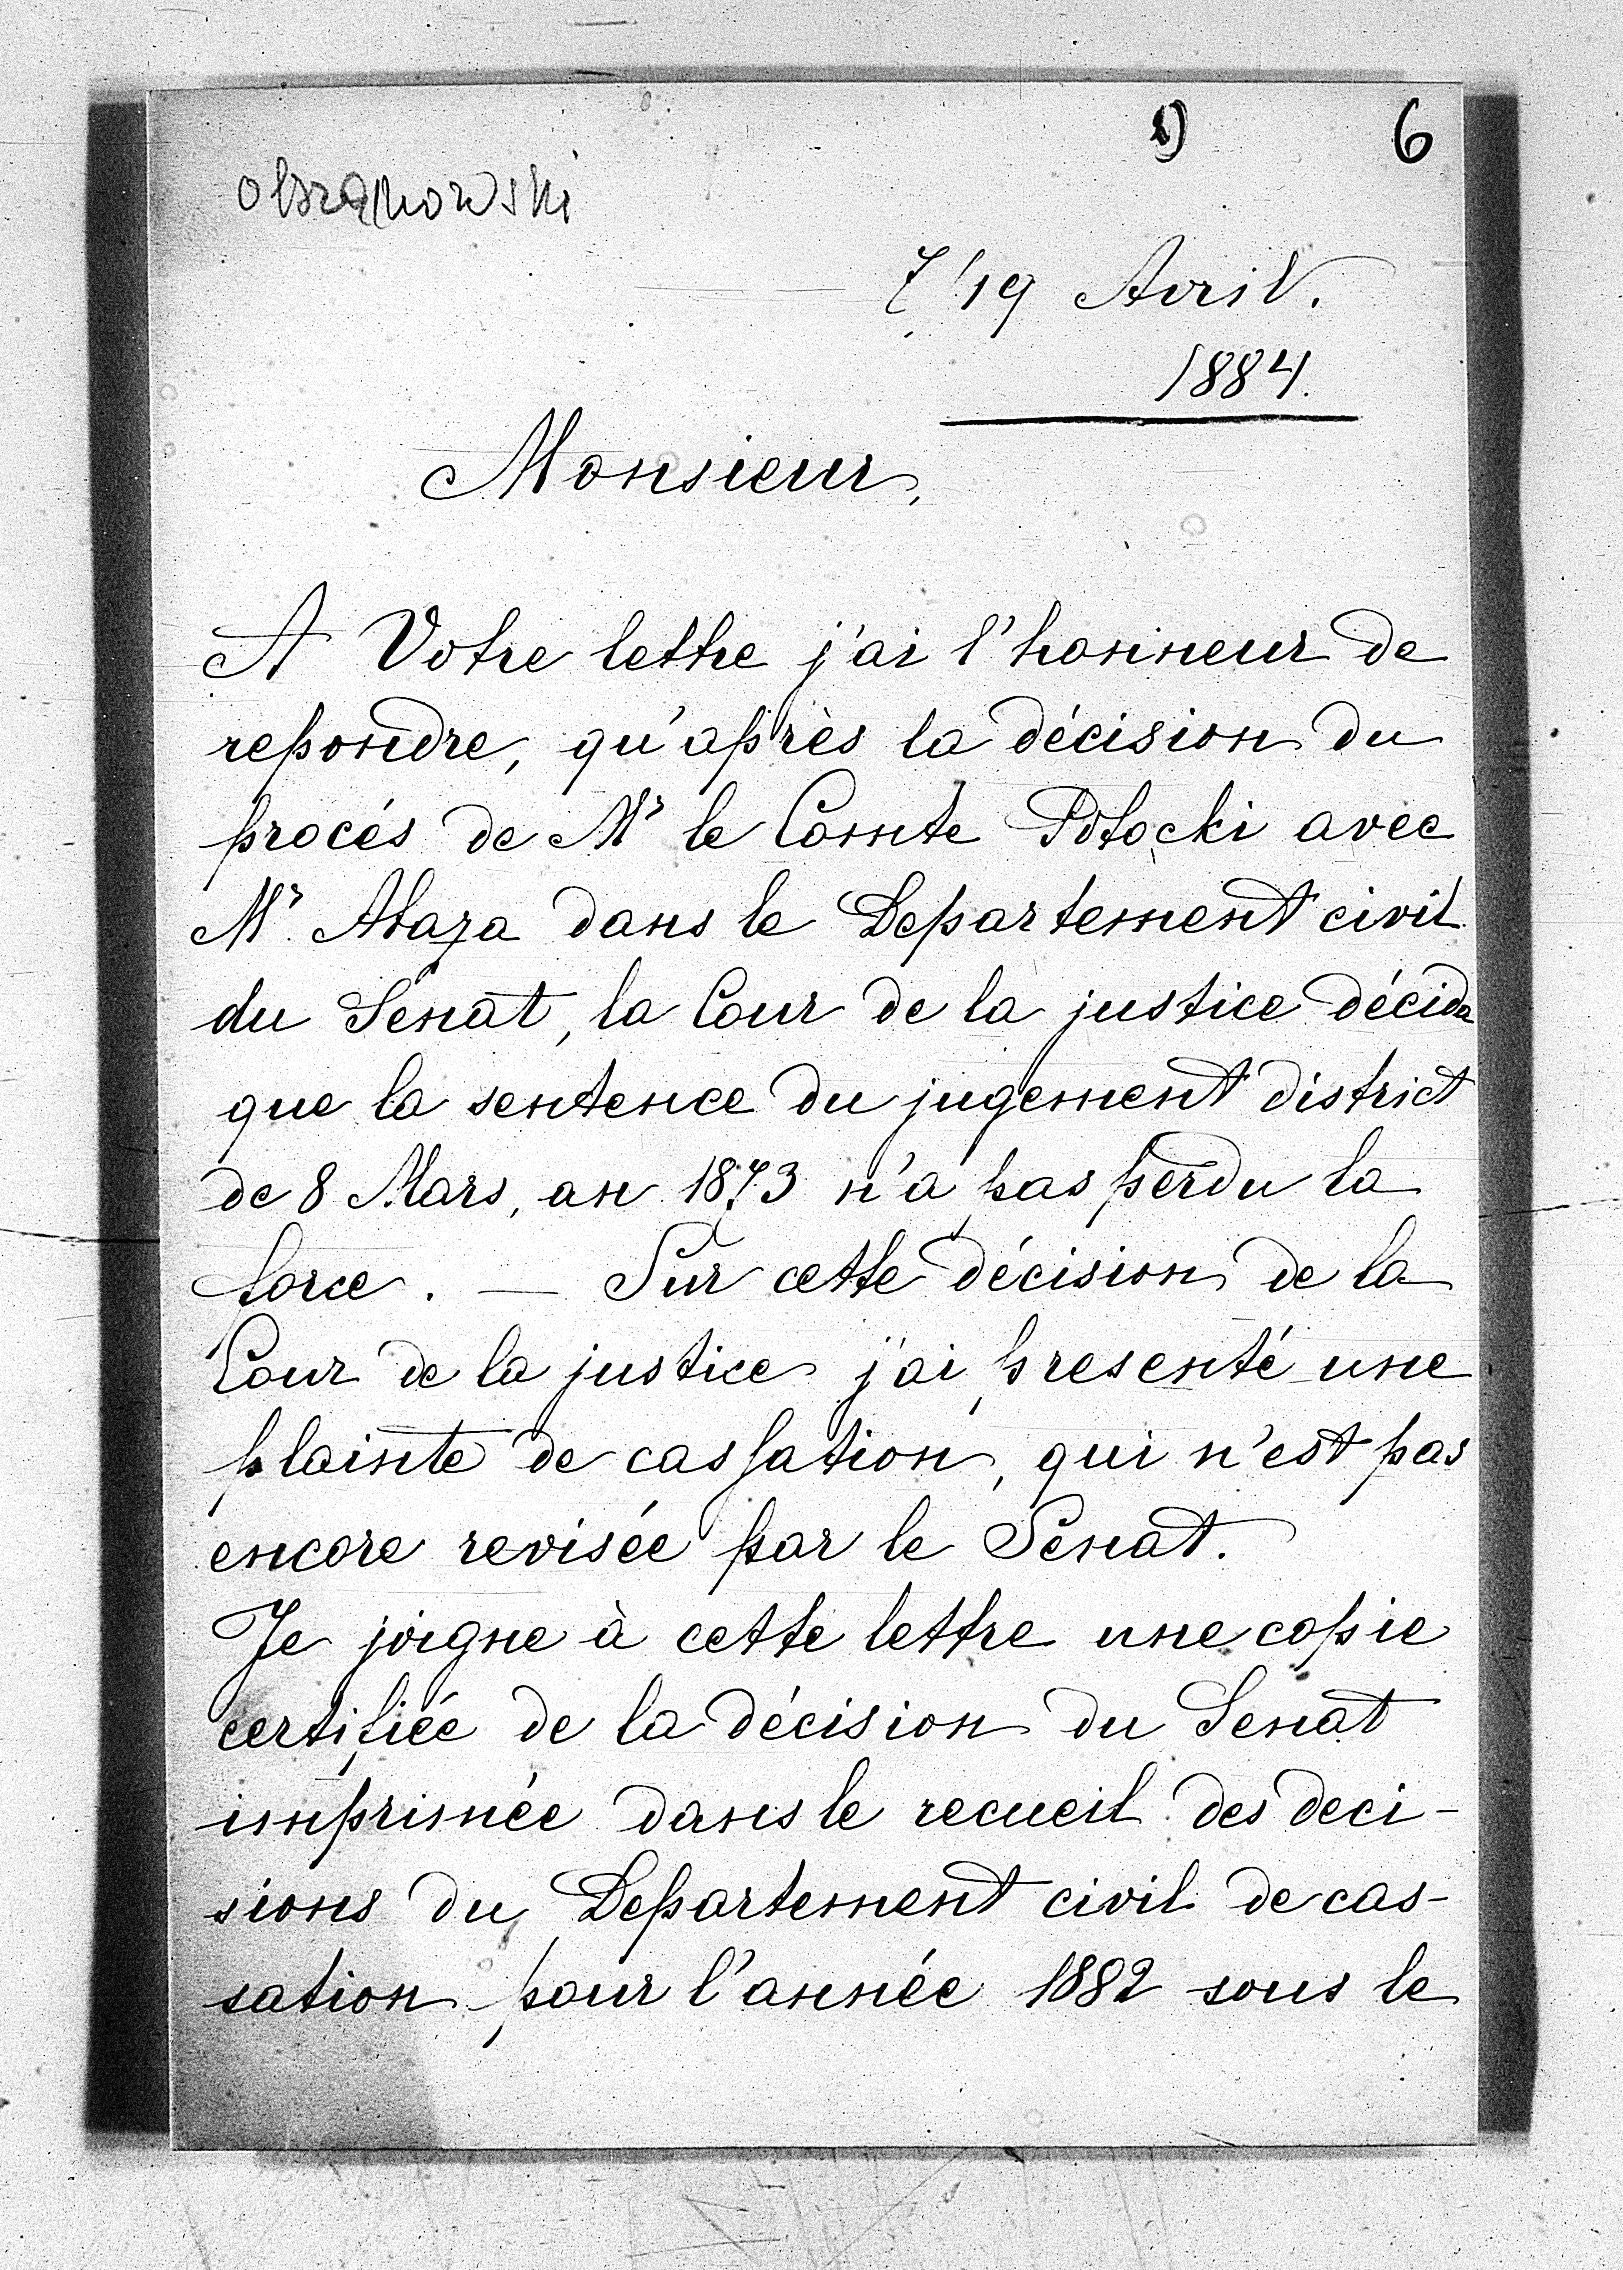 1) 6
7/19 Avril.
1884.
Monsieur,
A Votre lettre j'ai l'honneur de
repondre, qu'après la décision du
procés de Mr le Comte Potocki avec
Mr. Abaza dans le Departement civil
du Senat, la Cour de la justice décida
que la sentence du jugement district
de 8 Mars, an 1873 n'a pas perdu la
force. — Sur cette décision de la
Cour de la justice j'ai presenté une
plainte de cassation, qui n'est pas
encore revisée par le Senat.
Je joigne à cette lettre une copie
certifiée de la décision du Senat
imprimée dans le recueil des deci-
sions du Departement civil de cas-
sation pour l'année 1882 sous le